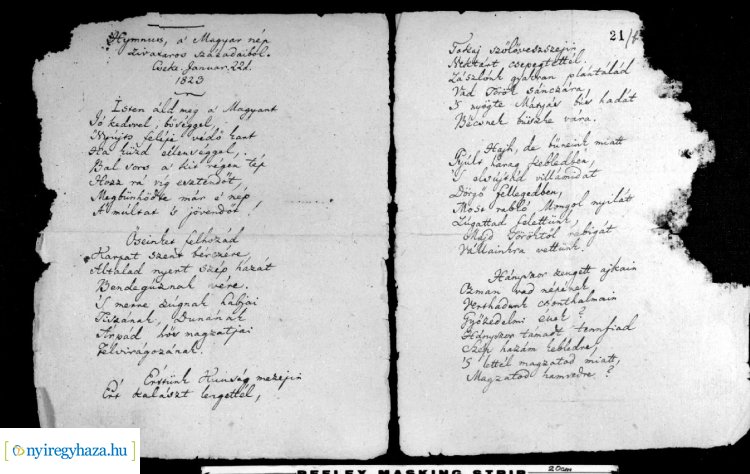 Hymnus, a' Magyar nép
zivataros századaiból.
Cseke. Januar. 22d.
1823
Isten áld meg a' Magyart
Jó kedvvel, bőséggel,
Nyújts feléje védő kart
Ha küzd ellenséggel;
Bal sors a' kit régen tép
Hozz rá víg esztendőt,
Megbünhődte már e' nép
A' múltat 's jövendőt!
Őseinket felhozád
Kárpát szent bérczére,
Általad nyert szép hazát
Bendegúznak vére.
'S merre zúgnak habjai
Tiszának, Dunának
Árpád hős magzatjai
Felvirágozának.
Értünk Kunság mezejin
Ért kalászt lengettél,
21/
Tokaj szőlővesszejin
Nektárt csepegtettél.
Zászlónk gyakran plántálád
Vad Török sánczára
'S nyögte Mátyás bús hadát
Bécsnek büszke vára.
Hajh, de bűneink miatt
Gyúlt harag kebledben,
'S elsújtád villámidat
Dörgő fellegedben,
Most rabló Mongol nyilát
Zúgattad felettünk,
Majd Töröktől rabigát
Vállainkra vettünk.
Hányszor zengett ajkain
Ozman vad népének
Vert hadunk csonthalmain
Győzedelmi ének?
Hányszor támadt tenfiad
Szép hazám kebledre,
'S lettél magzatod miatt,
Magzatod hamvedre?
nyiregyhaza.hu
REFLEX MASKING STRIP
20cm